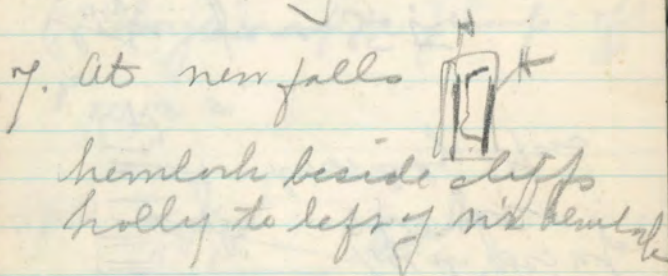 7. At new falls
H
H
hemlock beside cliffs
holly to left of hemlock